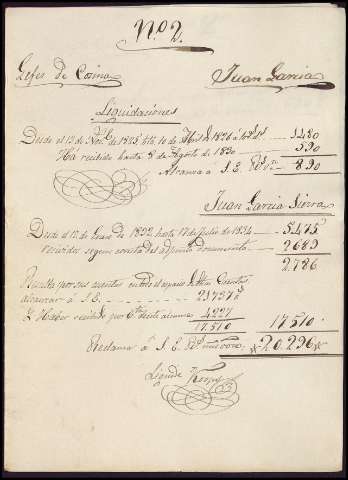 N.º 2.
Gefes de Cosina
Juan Garcia
Liquidaciones
Desde el 12 de de 1825 hta 10 de de 1826 á 1480
Ha recibido hasta 8 de Agosto de 1830 590
Alcanza á S. E. 890
Juan Garcia Sierra
Desde el 12 de Enero de 1832 hasta 17 de Julio de 1834 5475
recividos segun consta del adjunto documento 2689
2.786
Resulta por sus asientos en el de Cuentas
alcanzar á S. E. 21737
Y Haber recibido por de este alcance 4227
17510 17510
Reclama á S. E. *20.296*